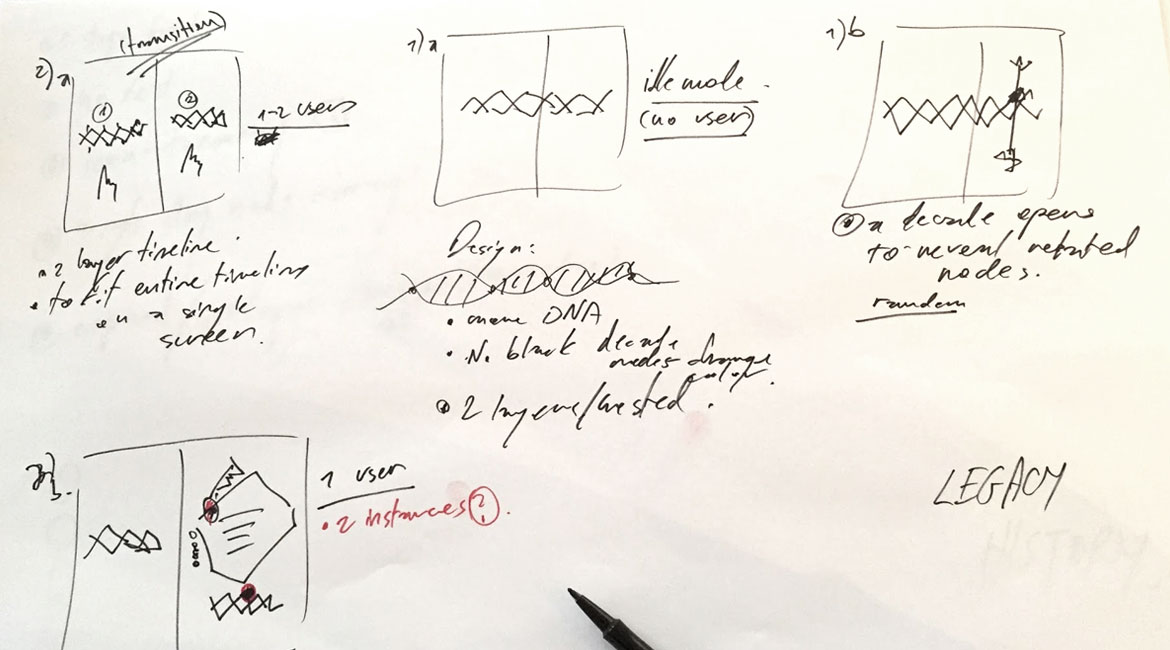 (transition)
2) a
1
2
1-2 users
1) a
idle mode
(no user)
1) b
a decade opens
to reveal related
nodes.
random
2 layer timeline.
to fit entire timeline
on a single
screen.
Design:
DNA
No black decade
nodes change
color.
2 layers/nested.
1 user
2 instances?
LEGACY